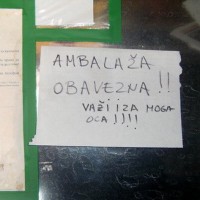 AMBALAŽA
OBAVEZNA !!
VAŽI I ZA MOGA
OCA !!!!